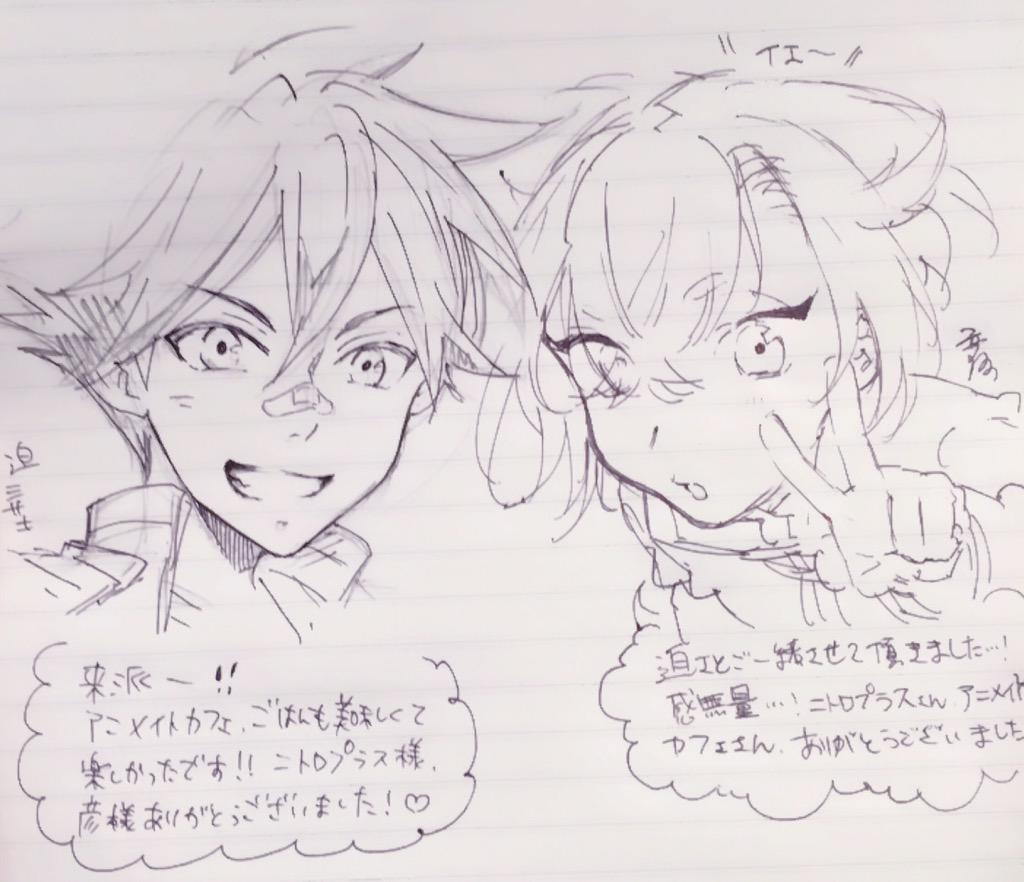 〃イエ〜〃
彦
迫
ミサ士
来派ー!!
アニメイトカフェ、ごはんも美味しくて
楽しかったです!!ニトロプラス様、
彦様ありがとうございました!♡
迫さとご一緒させて頂きました…!
感無量…!ニトロプラスさん、アニメイト
カフェさん、ありがとうございました